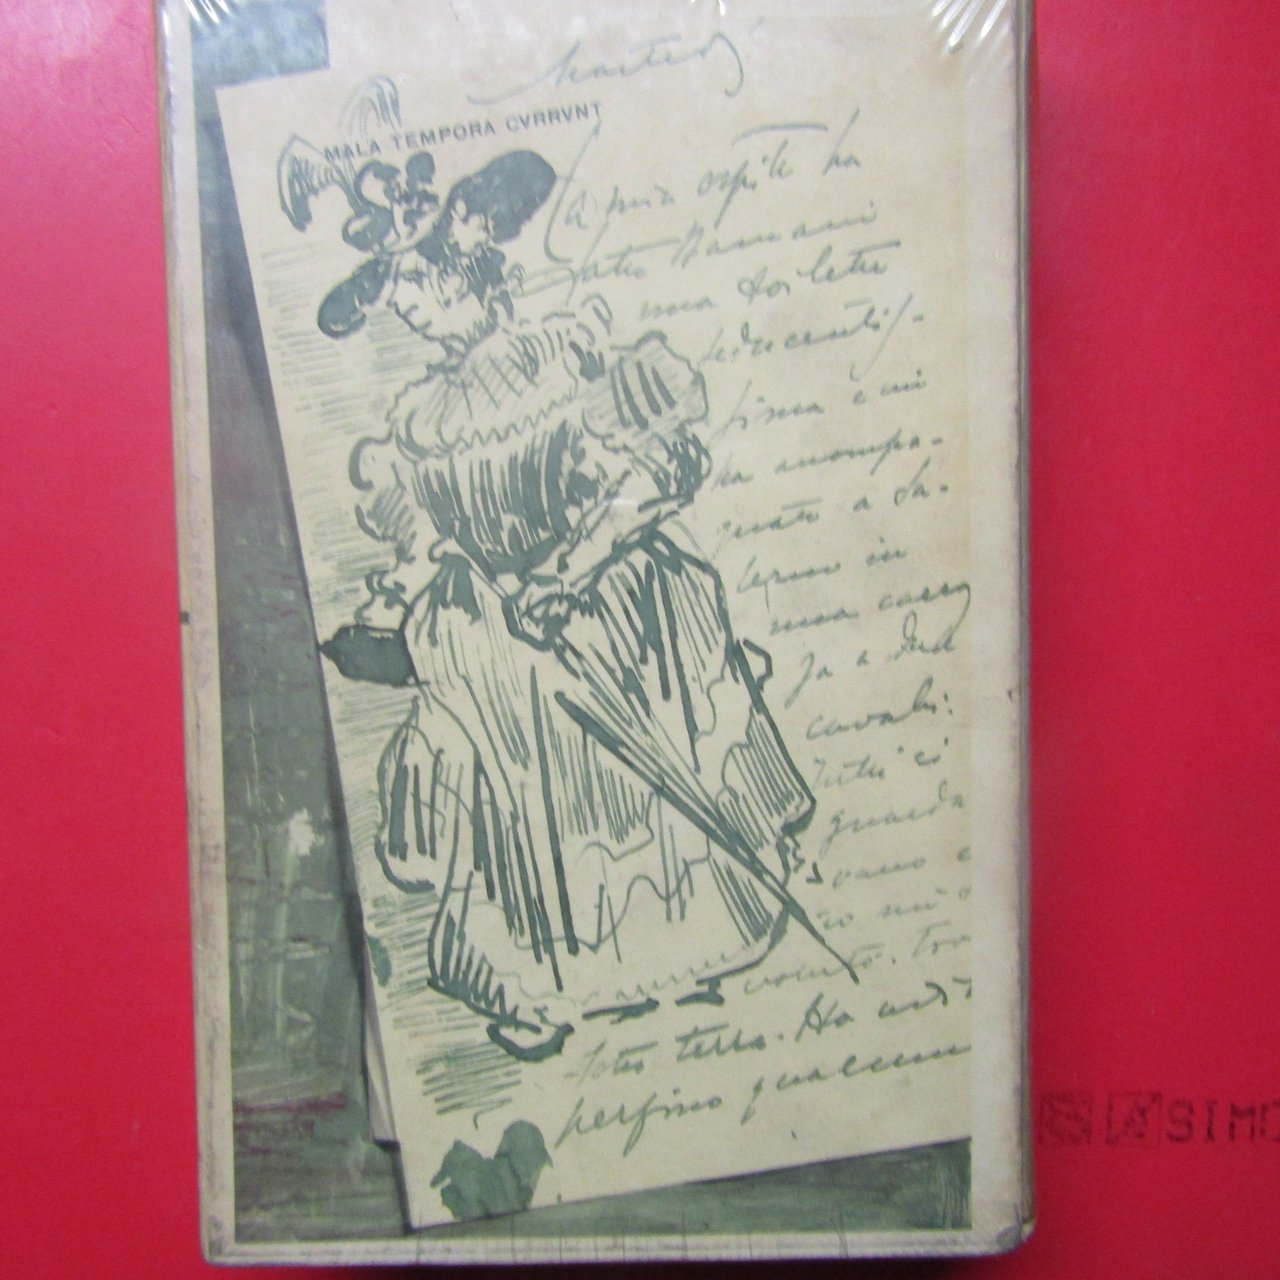 Martedì
MALA TEMPORA CVRRVNT
La mia ospite ha
fatto stamani
una toilette
seducentis-
sima e mi
ha accompa-
gnato a Sa-
lerno in
una carroz
za a due
cavalli.
Tutti ci
guarda
vano e
io mi
voluto. tro
sotto terra. Ho
perfino qualcun
SIMO